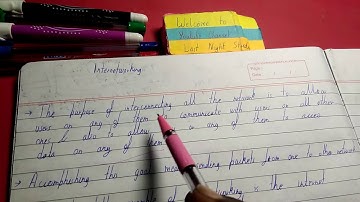 Welcome to
Youtube Channel
Last Night Study
Internetworking
→ The purpose of interconnecting all the network is to allow
users on any of them to communicate with users on all other
ones & also to allow users on any of them to access
data on any of them
→ Accomplishing this goal means sending packets from one to other network
of internetworking is the internet